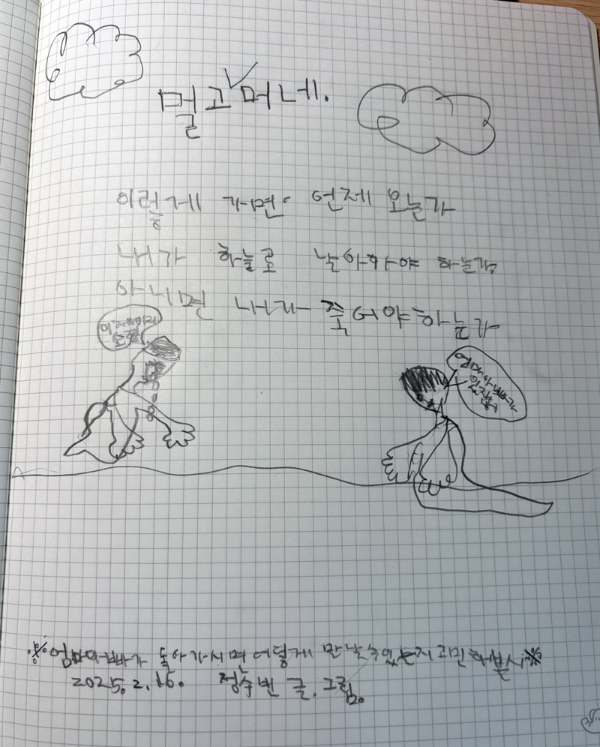 멀고 머네.
이렇게 가면 언제 오는가
내가 하늘로 날아가야 하는가
아니면 내가 죽어야하는가
엄마아빠가
※엄마아빠가 돌아가시면 어떻게 만날수있는지 고민해봅시※
2025. 2. 16. 정수빈 글, 그림.